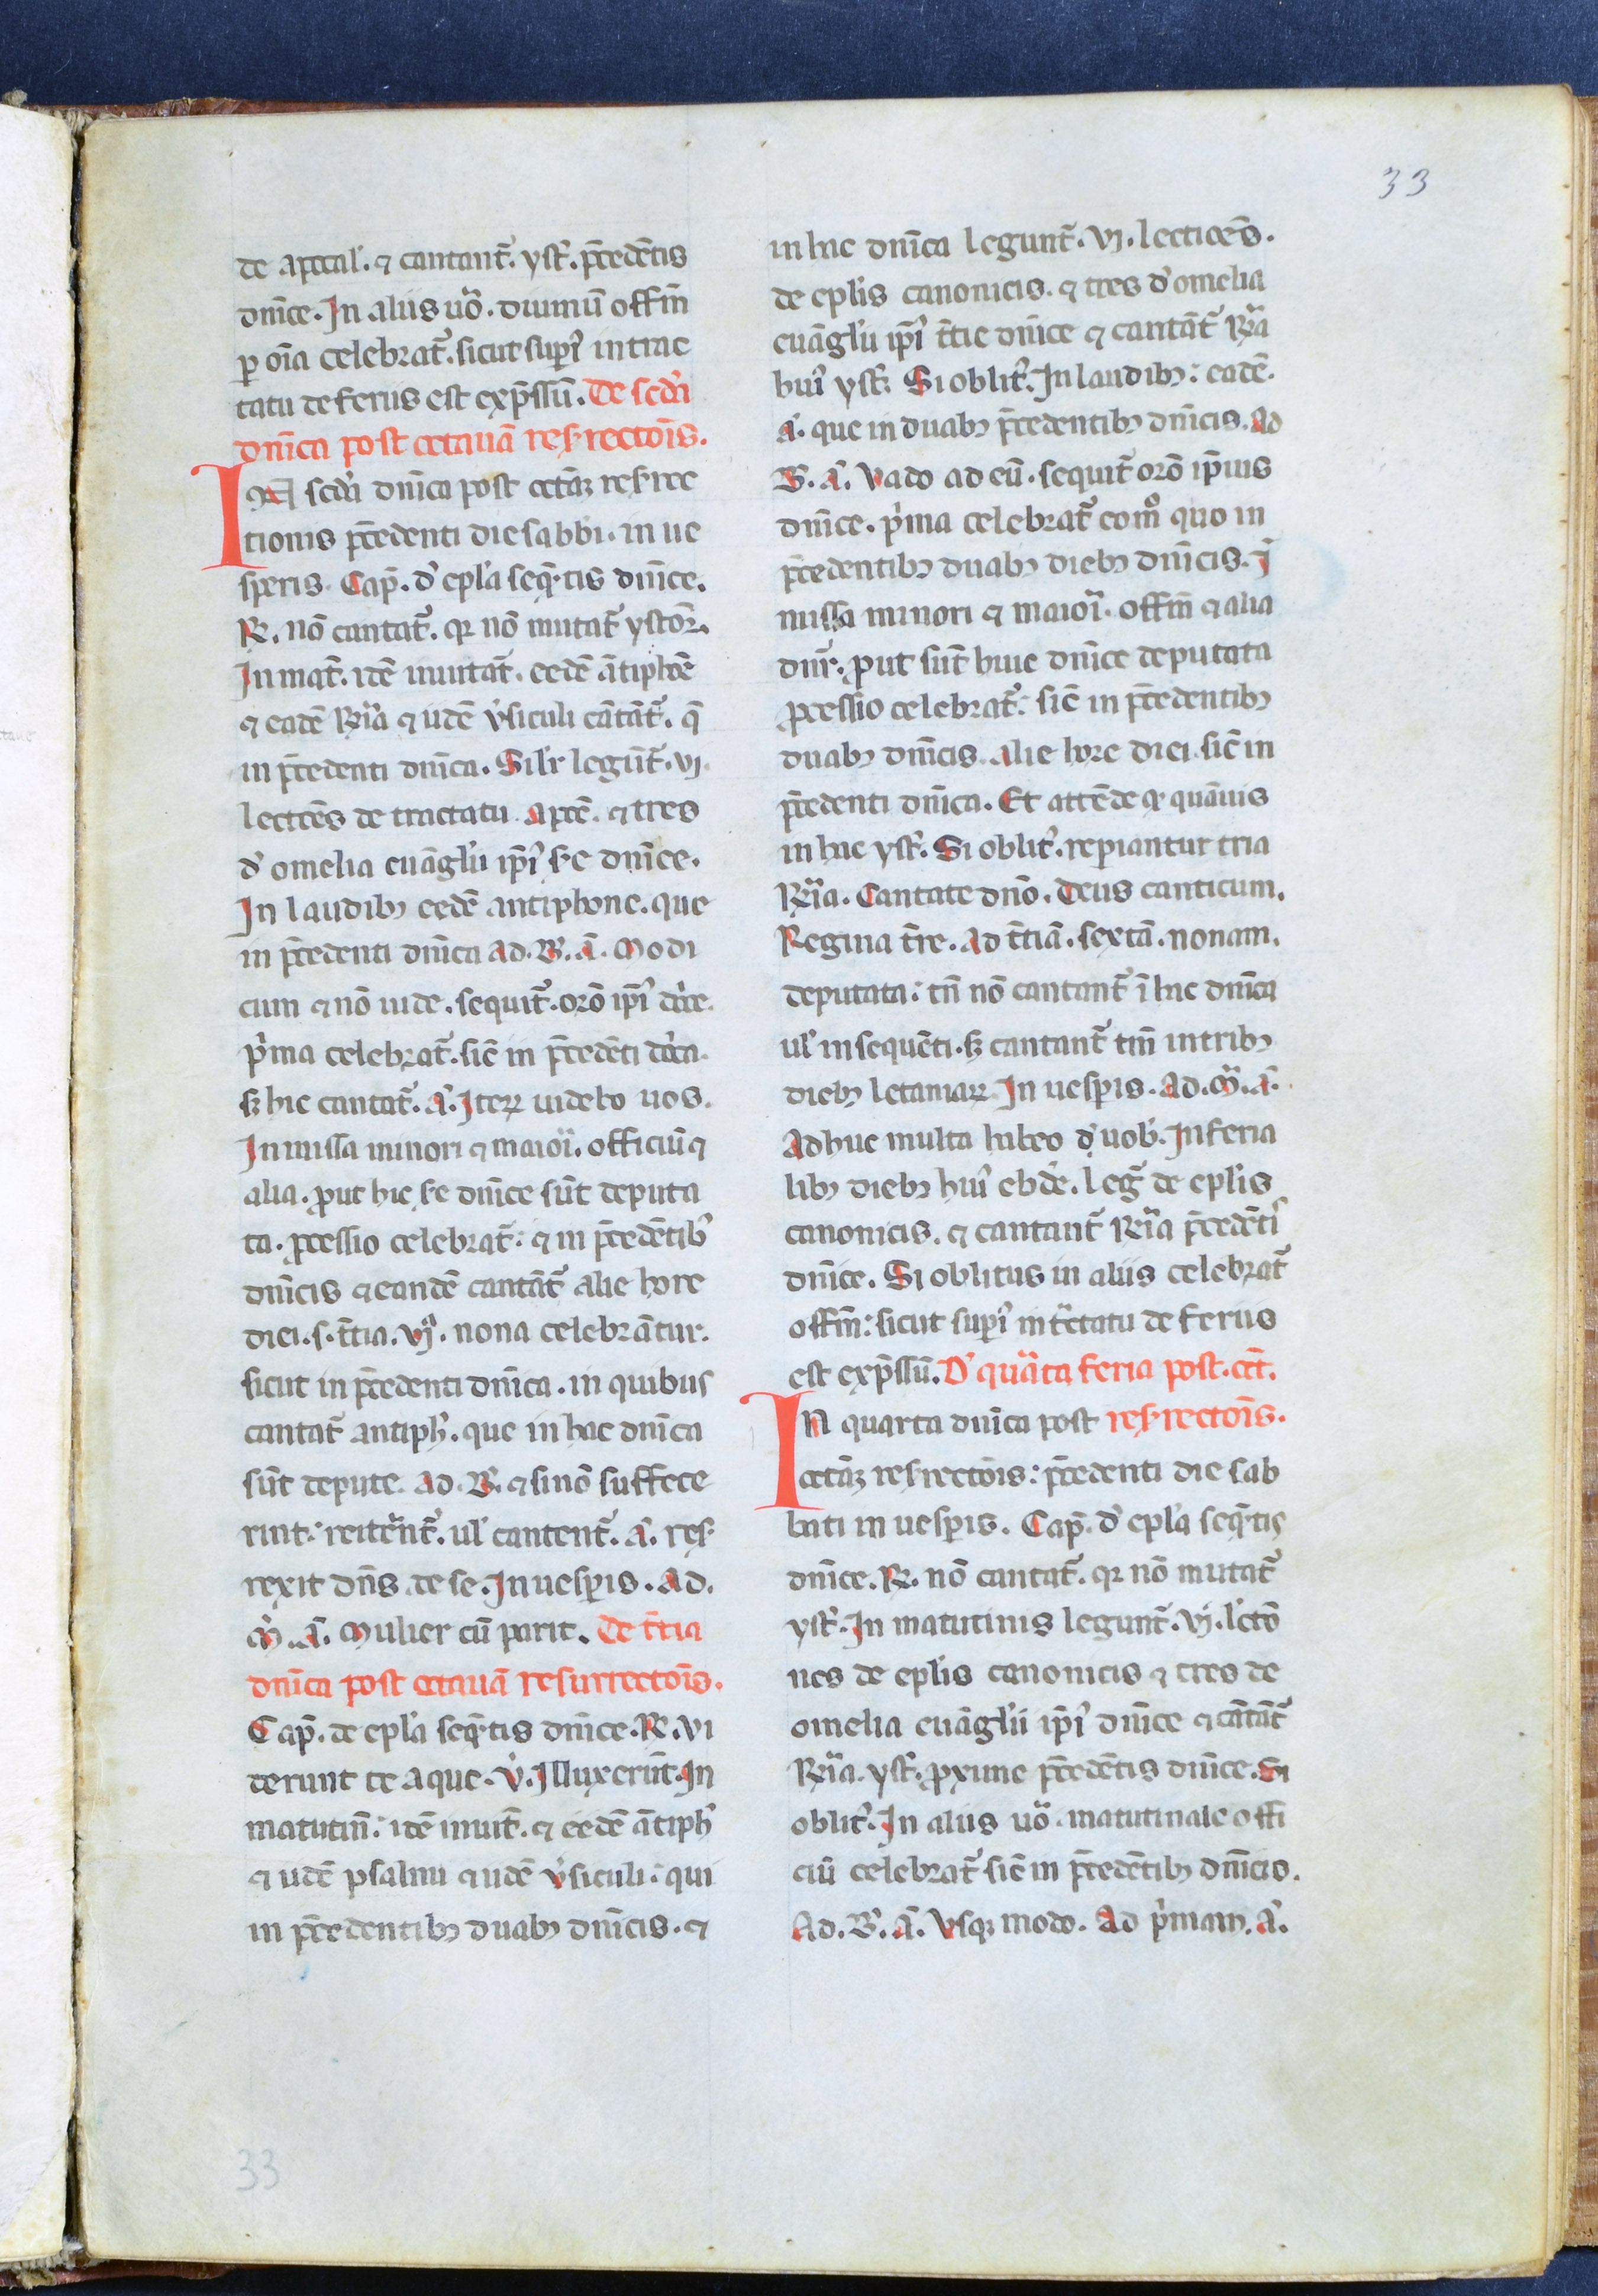 33
de apocal'. ⁊ cantant᷑. yst᷑. p̄cedēt̄is
dn̄ice. In aliis uo᷑. diurnū offm̄
ꝑ oīa celebrat᷑. sicut supi᷑ in trac
tatu de feriis est exp̄ssū. De scd̓a
dn̄ica post octauā resrectōis.
IN scd̓a dn̄ica post octāꝫ resrec
tionis p̄cedenti die sabbi. in ue
speris. Cap̄. d̓ epl'a seq̄ntis dn̄ice.
R̷. nō cantat᷑. qꝛ nō mutat᷑ ystor̄.
In mat᷑. idē inuitat᷑. eedē ātiphōe
⁊ eadē R̷ia ⁊ iidē v̓siculi cātāt᷑. q̄
in p̄cedenti dn̄ica. Sil'r legūt᷑. vj.
lectiōes de tractatu apoc̄. ⁊ tres
d̓ omelia euāgl'ii ip̄i᷑ s̓e dn̄ice.
In laudibꝫ eedē antiphone. que
in p̄cedenti dn̄ica Ad. B̓. a᷑. Modi
cum ⁊ nō uide. sequit᷑. orō ip̄i᷑ dc̄e.
p̓ma celebrat᷑. sic̄ in p̄cedēti dc̄a.
sꝫ hic cantat᷑. a᷑. Iteꝝ uidebo uos.
In missa minori ⁊ maiori. officiū ⁊
alia. ꝓut hic s̓e dn̄ice sūt deputa
ta. ꝓcessio celebrat᷑: ⁊ in p̄cedētib᷑
dn̄icis ⁊ eandē cantāt᷑ alie hore
diei. s. t̄tia. vj᷑. nona celebrātur.
sicut in p̄cedenti dn̄ica. in quibus
cantat᷑ antiph̓. que in hac dn̄ica
sūt depute. ad. B̓. ⁊ si nō suffece
rint: reitent᷑. ul' cantent᷑. a᷑. res
rexit dn̄s. de se. In uesꝑis. Ad.
M̓. a᷑. Mulier cū parit. De t̄tia
dn̄ica post octauā resurrectōis.
Cap̄. de epl'a seq̄ntis dn̄ice. R̷. Vi
derunt te aque. v̓. Illuxerūt. In
matutin̄: idē inuit᷑. ⁊ eedē ātiph̓
⁊ iidē psalmi ⁊ iidē v̓siculi: qui
in p̄cedentibꝫ duabꝫ dn̄icis. ⁊
in hac dn̄ica legunt᷑. vj. lectiōes.
de epl'is canonicis. ⁊ tres d̓ omelia
euāgl'ii ip̄i᷑ t̄tie dn̄ice ⁊ cantāt᷑ R̷ia
hui᷑ yst᷑. Si oblit᷑. In laudibꝫ: eadē.
a᷑. que in duabꝫ p̄cedentibꝫ dn̄icis. Ad
B̓. a᷑. Vado ad eū. sequit᷑ orō ip̄ius
dn̄ice. p̓ma celebrat᷑ eo mō quo in
p̄cedentibꝫ duabꝫ diebꝫ dn̄icis. I
missa minori ⁊ maiori. offm̄ ⁊ alia
dnr̄. ꝓut sūt huic dn̄ice deputata
ꝓcessio celebrat᷑: sic̄ in p̄cedentibꝫ
duabꝫ dn̄icis. Alie hore diei sic̄ in
p̄cedenti dn̄ica. Et attēde qꝛ quāuis
in hac yst᷑. Si oblit᷑. repiantur tria
R̷ia. Cantate dn̄o. Deus canticum.
Regina t̄re. Ad t̄tiā. sextā. nonam.
deputata: tn̄ nō cantant᷑ ī hac dn̄ica
ul' in sequēti. sꝫ cantant᷑ tm̄ in tribꝫ
diebꝫ letaniaꝝ. In uesꝑis. Ad. M̓. a᷑.
Adhuc multa habeo d̓ uob̓. In feria
libꝫ diebꝫ hui᷑ ebd̓e. leg᷑ de epl'is
canonicis. ⁊ cantant᷑ R̷ia p̄cedēti᷑
dn̄ice. Si oblitus in aliis celebrat᷑
offm̄: sicut supi᷑ in tctatu de feriis
est exp̄ssū. D̓ quarta feria post. oct̄.
IN quarta dn̄ica post resrectōis.
octāꝫ resrectōis: p̄cedenti die sab
bati in uesꝑis. Cap̄. d̓ epl'a seq̄ntis
dn̄ice. R̷. nō cantat᷑. qꝛ nō mutat᷑
yst᷑. In matutinis legunt᷑. vj. lc̄tō
nes de epl'is canonicis ⁊ tres de
omelia euāgl'ii ip̄i᷑ dn̄ice ⁊ cātāt᷑
R̷ia. yst᷑. ꝓxime p̄cedētis dn̄ice. Si
oblit᷑. In aliis uo᷑. matutinale offi
ciū celebrat᷑ sic̄ in p̄cedētibꝫ dn̄icis.
Ad. B̓. a᷑. Vsqꝫ modo. Ad p̓mam. a᷑.
33